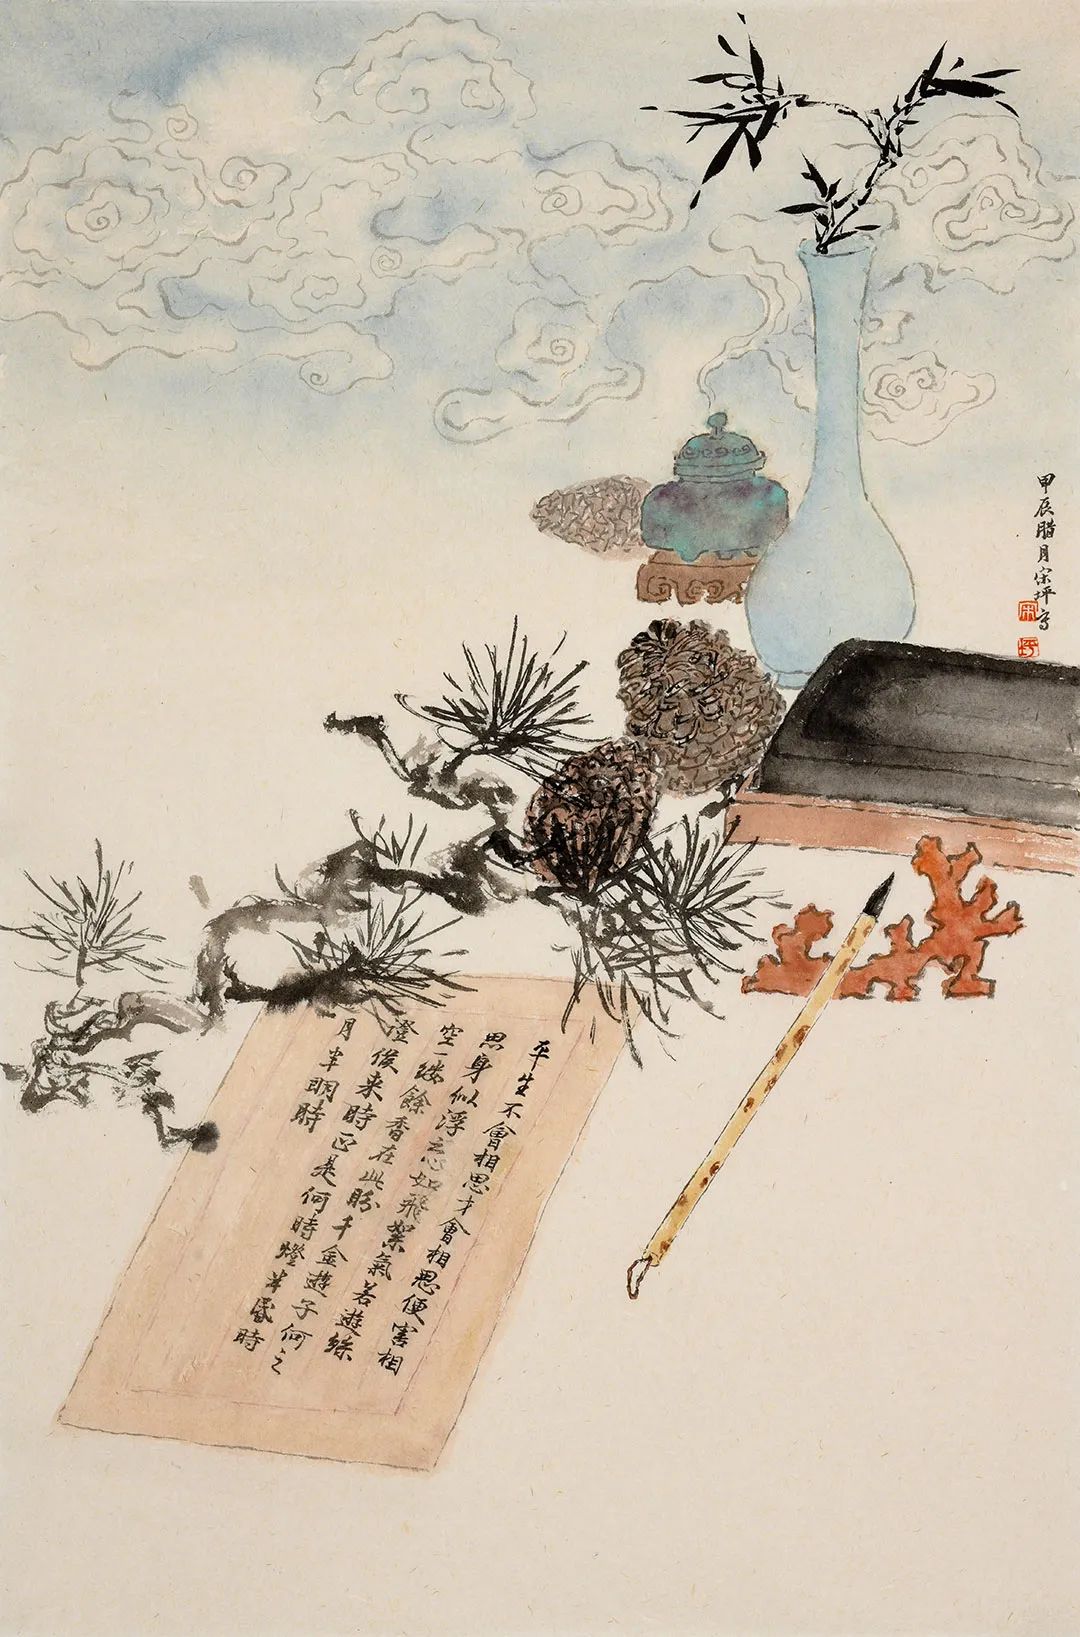 平生不會相思才會相思便害相
思身似浮云心如飛絮氣若遊絲
空一縷餘香在此盼千金遊子何之
澄候来時正是何時燈半昏時
月半明時
甲辰腊月宋坪写
宋
坪